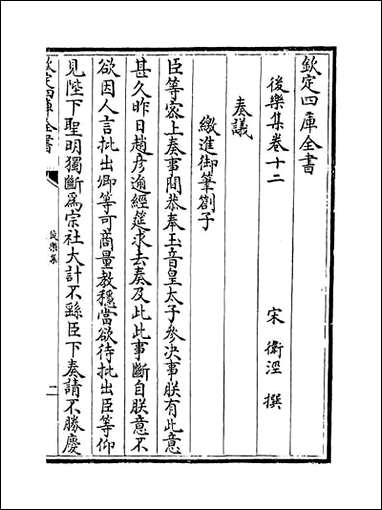 欽定四庫全書
後樂集卷十二
宋 衛涇 撰
奏議
繳進御筆劄子
臣等密上奏事間恭奉玉音皇太子參決事朕有此意
甚久昨日趙彦逾經筵求去奏及此此事斷自朕意不
欲因人言批出卿等可商量教穩當欲待批出臣等仰
見陛下聖明獨斷為宗社大計不繇臣下奏請不勝慶
欽定四庫全書
後樂集
一